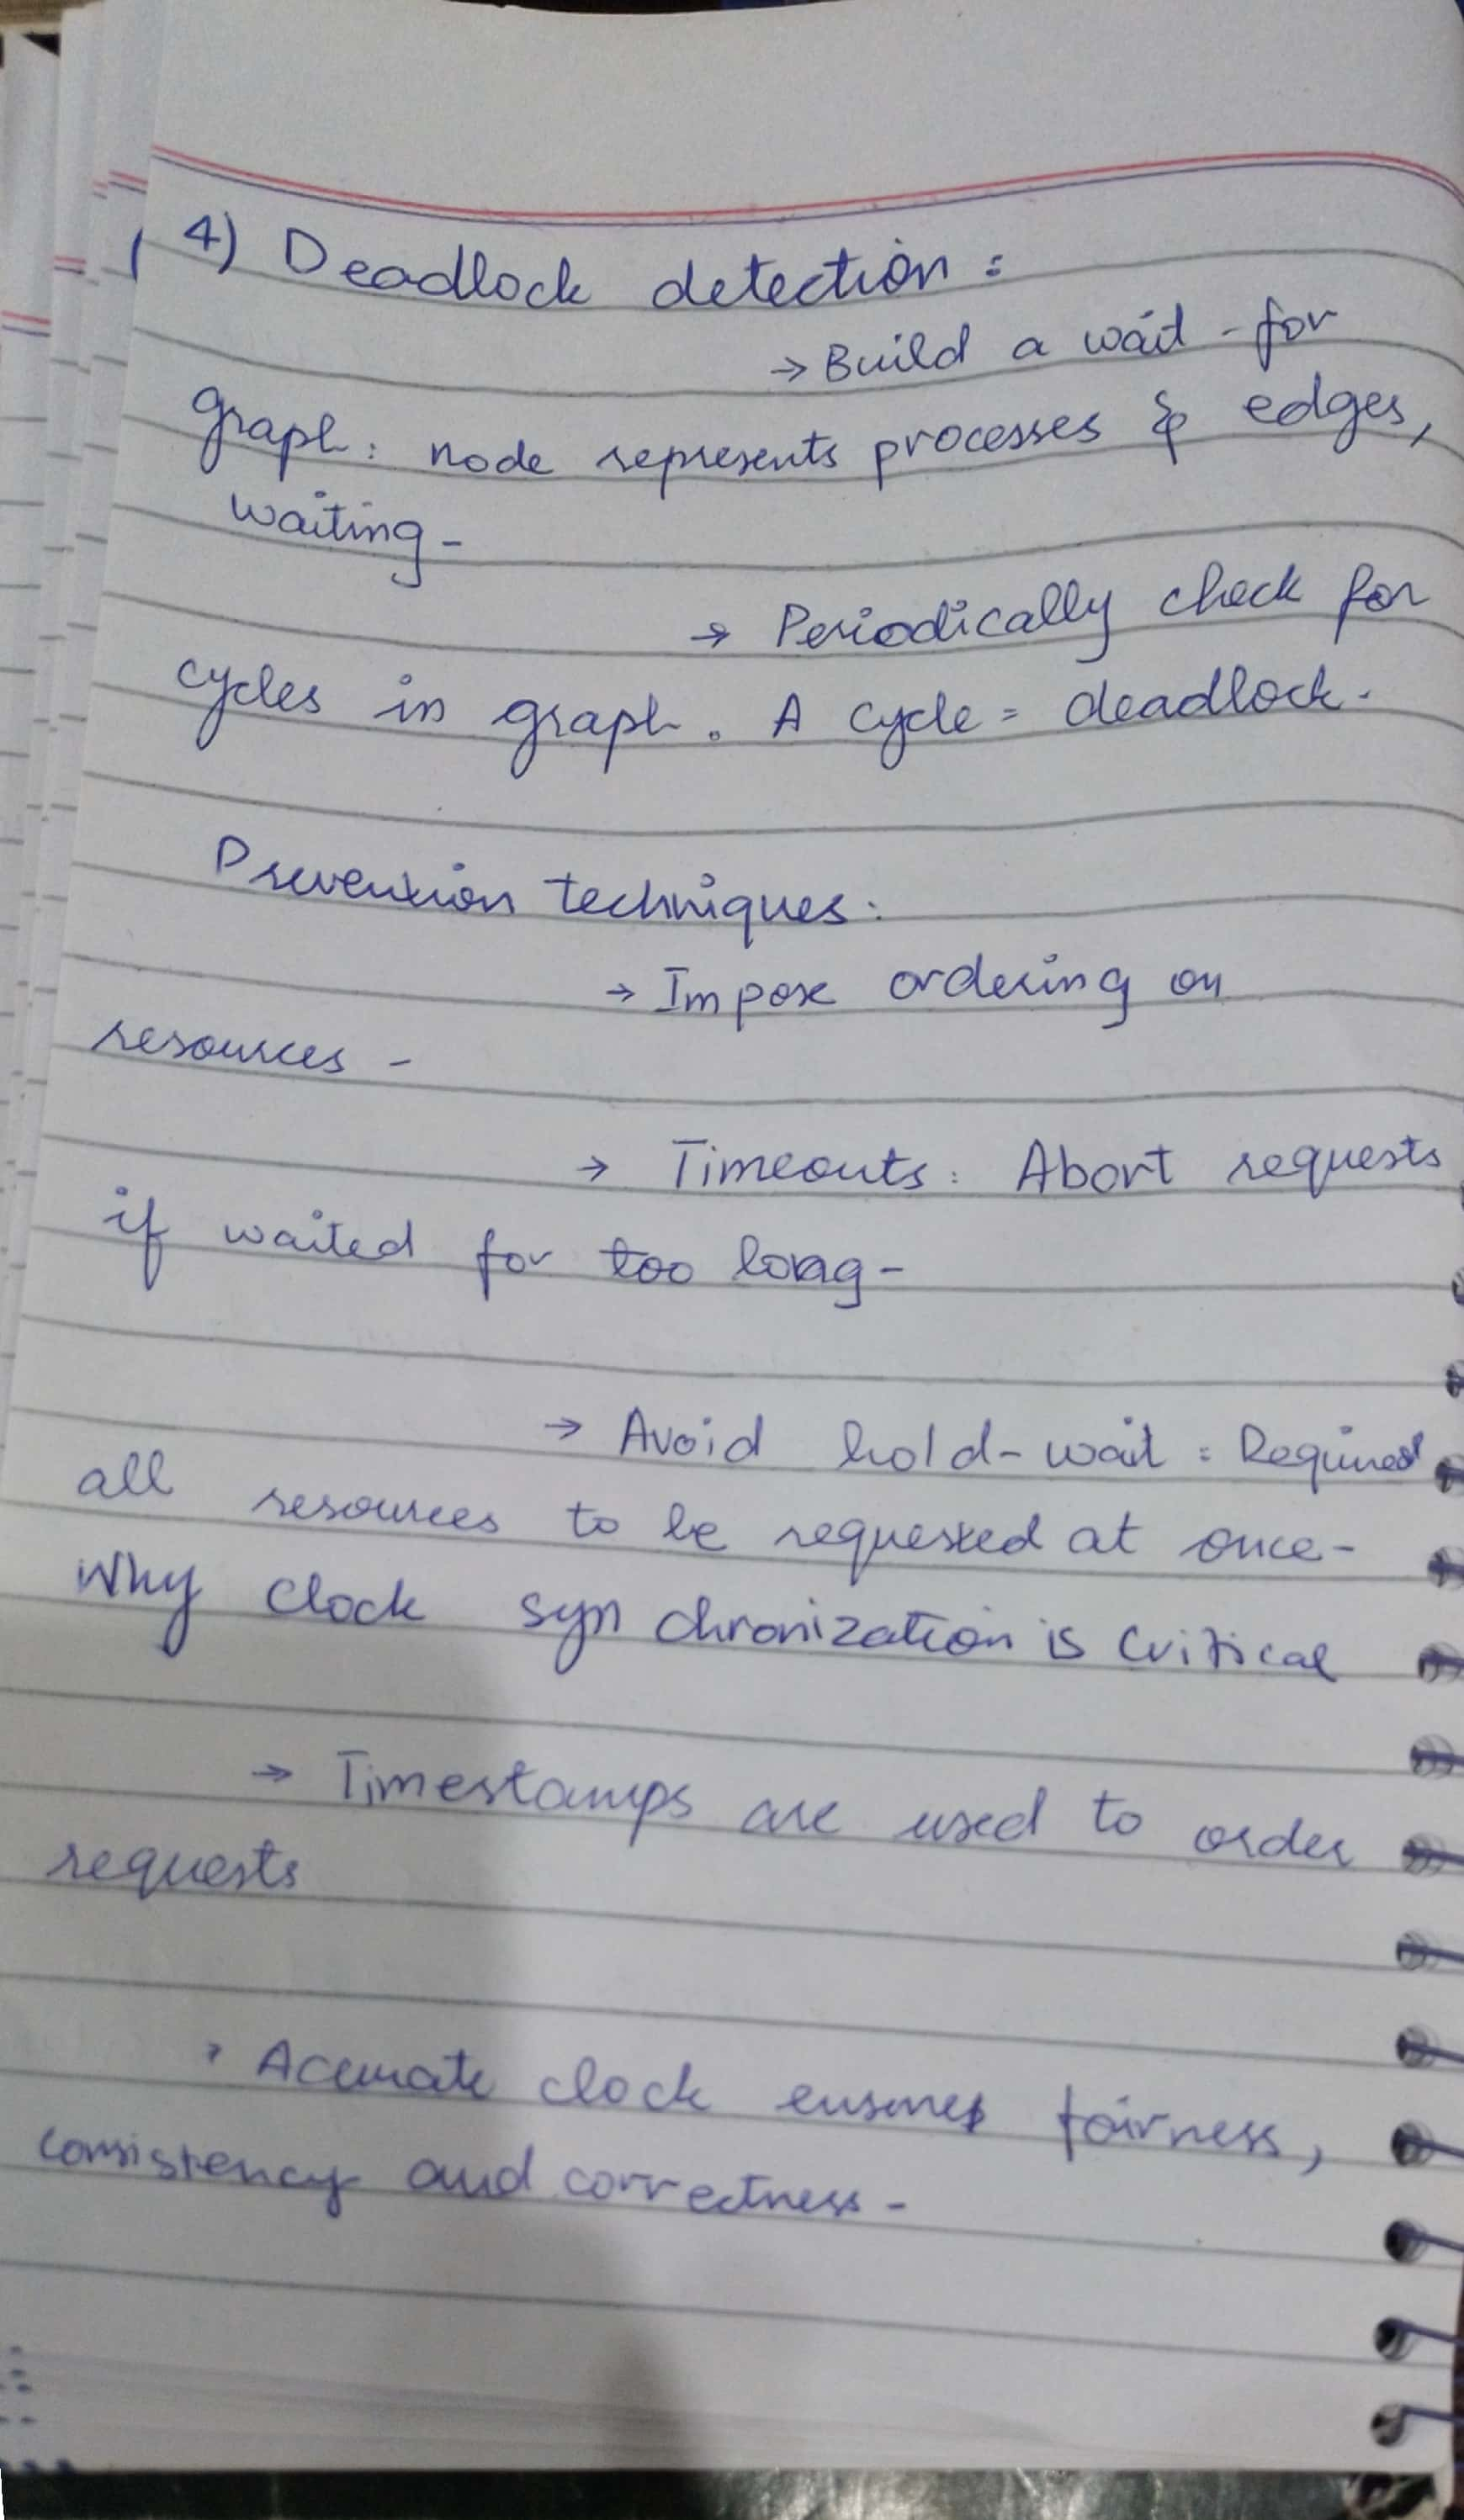 4) Deadlock detection :
→ Build a wait - for
graph : node represents processes & edges,
waiting -
→ Periodically check for
cycles in graph . A cycle = deadlock .
Prevention techniques :
→ Impose ordering on
resources -
→ Timeouts : Abort requests
if waited for too long -
→ Avoid hold - wait : Required
all resources to be requested at once -
Why Clock syn chronization is critical
→ Timestamps are used to order
requests
→ Accurate clock ensures fairness ,
consistency and correctness -